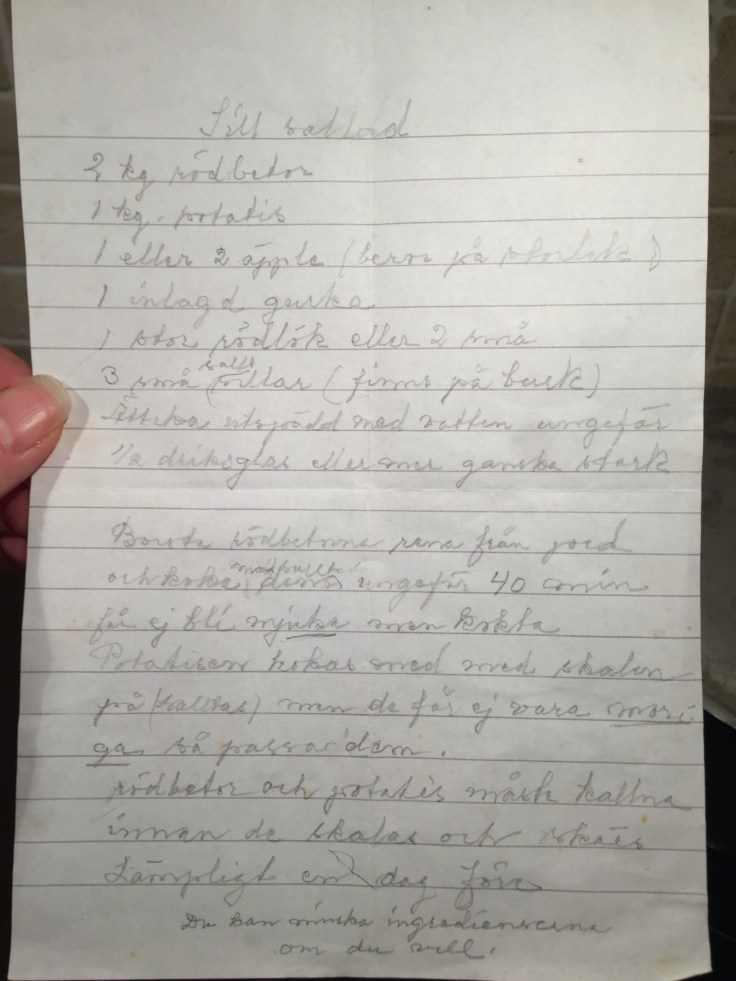 Sill sallad
2 kg rödbetor
1 kg. potatis
1 eller 2 äpple (beror på storlek)
1 inlagd gurka
1 stor rödlök eller 2 små
3 små salt sillar (finns på burk)
Ättika utspädd med vatten ungefär
1/2 dricksglas eller mer ganska stark
Borsta rödbetorna rena från jord
och koka dem ungefär 40 min
får ej bli mjuka men kokta
Potatisen kokas med med skalen
på (saltas) men de får ej vara mosi-
ga, så passa dem.
rödbetor och potatis måste kallna
innan de skalas och
Lämpligt en dag före
Du kan minska ingredienserna
om du vill.